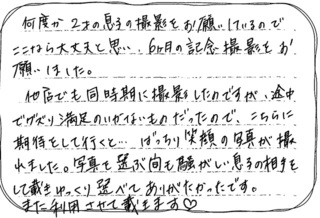 何度か2才の息子の撮影をお願いしているので
ここなら大丈夫と思い、6ヶ月の記念撮影をお
願いしました。
他店でも同時期に撮影したのですが、途中
でグズり満足のいかないものだったので、こちらに
期待をして行くと… ばっちり笑顔の写真が撮
れました。写真を選ぶ間も騒がしい息子の相手を
して戴きゆっくり選べてありがたかったです。
また利用させて戴きます♡